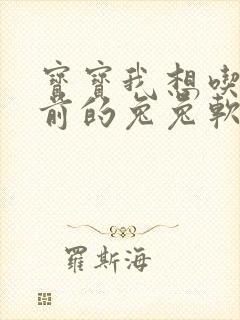 寶寶我想喫
前的兔兔軟
羅斯海